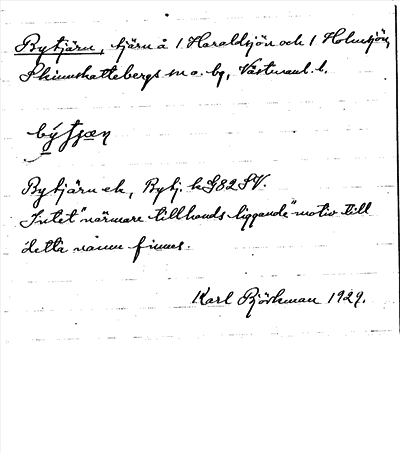 Bytjärn, tjärn å 1 Haraldsjön och 1 Holmsjön,
Skinnskattebergs sn o. bg, Västmanl. l.
bý tjæn
Bytjärn ek, Bytj. k G82 SV.
Intet "närmare tillhands liggande" motiv till
detta namn finnes.
Karl Björkman 1929.